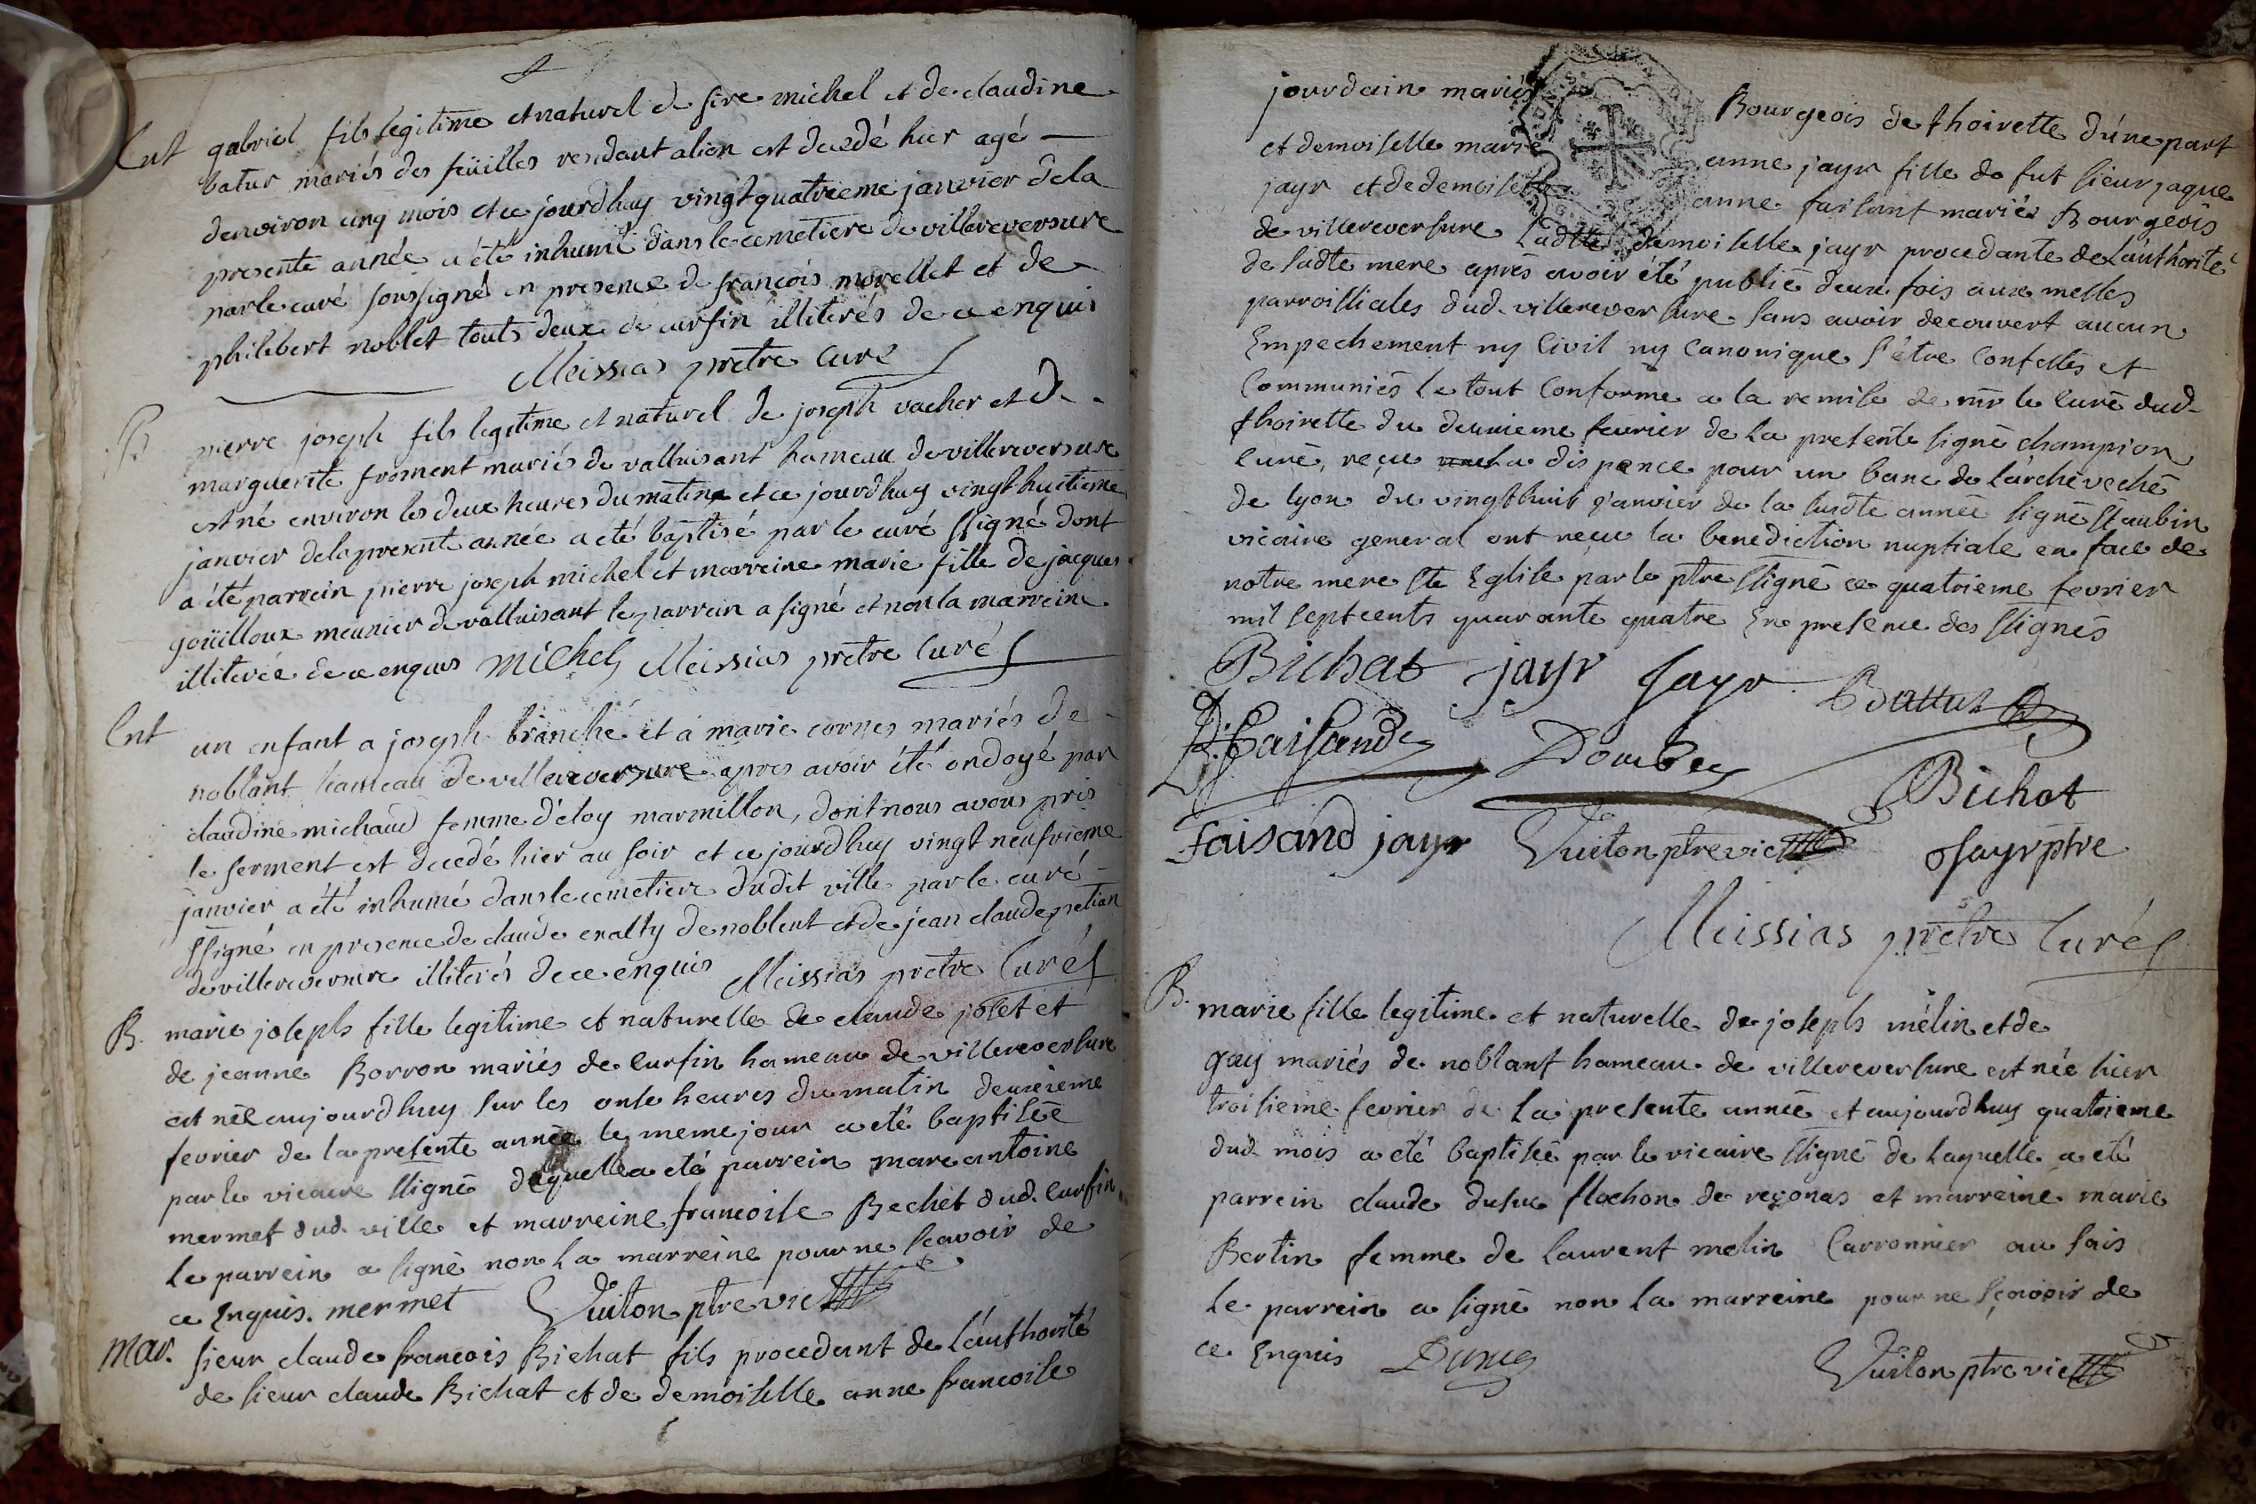 Ent gabriel fils legitime et naturel de sire michel et de claudine
batur mariés des feüilles resident alion est decedé hier agé
denviron cinq mois et ce jourdhuy vingtquatrieme janvier dela
presente année a été inhumé dans le cemetiere de villereversure
par le curé soussigné en presence de françois morellet et de
philibert noblet touts deux de curfin illiterés de ce enquis
Meissias pretre curé
B pierre joseph fils legitime et naturel de joseph vacher et de
marguerite froment mariés de valluisant hameau de villereversure
est né environ les deux heures du matin et ce jourdhuy vingt huitieme
janvier dela presente année a été baptisé par le curé ssigné dont
a été parrein pierre joseph michel et marreine marie fille de jacques
goüilloux meunier de valluisant le parrein a signé et non la marreine
illiterée de ce enquis Michel Meissias pretre curé
Ent un enfant a joseph branche et a marie cornes mariés de
noblant hameau de villereversure apres avoir été ondoyé par
claudine michaud femme d'éloy marmillon, dont nous avons pris
le serment est decedé hier au soir et ce jourdhuy vingt neufvieme
janvier a été inhumé dans le cemetiere dudit ville par le curé
ssigné en presence de claude eralty de noblent et de jean claude
de villereversure illiterés de ce enquis Meissias pretre Curé
B. marie joseph fille legitime et naturelle de claude joset et
de jeanne Borron mariés de Curfin hameau de villereversure
est née aujourdhuy sur les onse heures du matin deuxieme
fevrier de la presente année le meme jour a eté baptisée
par le vicaire ssigné de quelle a eté parrein marc antoine
mermet dud. ville et marreine francoise Bechet dud. Curfin
le parrein a signé non la marreine pour ne sçavoir de
ce Enquis. mermet Vuiton ptre vic
Mar. sieur claude francois Bichat fils procedant de l'authorité
de sieur claude Bichat et de demoiselle anne francoise
jourdain mariés Bourgeois de thoirette d'une part
et demoiselle marie anne jayr fille de fut sieur jaque
jayr et de demoiselle anne faisant mariés Bourgeois
de villereversure Ladte demoiselle jayr procedante de L'authorité
de sadte mere aprés avoir été publié deux fois aux messes
parroissiales dud. villereversure sans avoir decouvert aucun
Empechement ny Civil ny Canonique s'étre Confessés et
Communiés le tout Conforme a la remise de mr le Curé dud.
thoirette du deuxieme fevrier de la presente signé champion
Curé, reçue la dispence pour un banc de L'archeveché
de lyon du vingthuit janvier de la susdte année signé St aubin
vicaire general ont reçu la benediction nuptiale en face de
notre mere Ste Eglise par le ptre ssigné ce quatrieme fevrier
mil septcents quarante quatre En presence des ssignés
Bichat jayr Jayr Battur
D. Faisand Dombey
Bichat
Faisand jayr Vuiton ptre vic Jayr ptre
Meissias pretre Curé
B. marie fille legitime et naturelle de joseph mélin et de
gay mariés de noblant hameau de villereversure est née hier
troisieme fevrier de la presente année et aujourdhuy quatrieme
dud. mois a été baptisée par le vicaire ssigné de Laquelle a eté
parrein claude dusuc flachon de reçonas et marreine marie
Bertin femme de laurent melin Carronnier au sais
le parrein a signé non la marreine pour ne sçavoir de
ce Enquis Dusuc Vuiton ptre vic